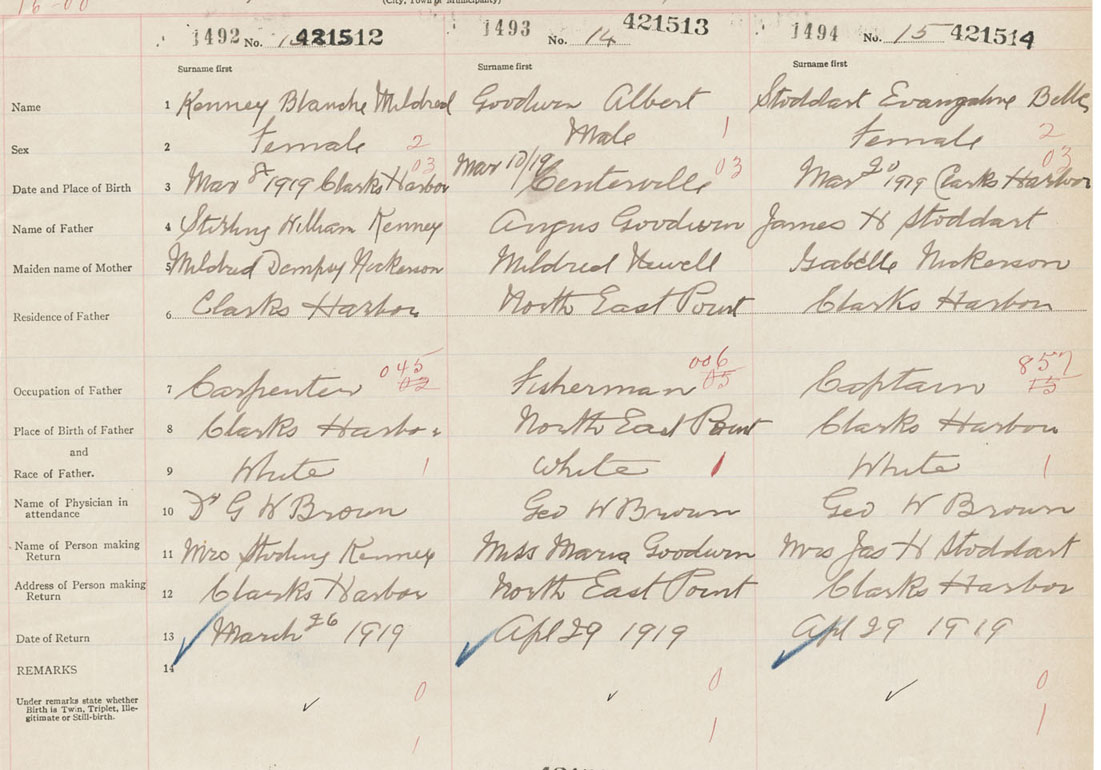 16-00
(City, Town or Municipality)
1492 No. 421512
1493 No. 14 421513
1494 No. 15 421514
Surname first Surname first Surname first
Name 1 Kenney Blanche Mildred Goodwin Albert Stoddart Evangeline Belle
Sex 2 Female 2 Male 1 Female 2
Date and Place of Birth 3 Mar 8th 1919 Clarks Harbor 03 Mar 10/19 Centerville 03 Mar 20 1919 Clarks Harbor 03
Name of Father 4 Stirling William Kenney Angus Goodwin James H Stoddart
Maiden name of Mother 5 Mildred Dempsy Nickerson Mildred Newell Isabelle Nickerson
Residence of Father 6 Clarks Harbor North East Point Clarks Harbor
Occupation of Father 7 Carpenter 045 02 Fisherman 006 05 Captain 857 15
Place of Birth of Father 8 Clarks Harbor North East Point Clarks Harbor
and
Race of Father. 9 White 1 White 1 White 1
Name of Physician in
attendance 10 Dr G W Brown Geo W Brown Geo W Brown
Name of Person making
Return 11 Mrs Stirling Kenney Miss Maria Goodwin Mrs Jas H Stoddart
Address of Person making
Return 12 Clarks Harbor North East Point Clarks Harbor
Date of Return 13 March 26 1919 Apl 29 1919 Apl 29 1919
REMARKS 14
0 0 0
Under remarks state whether
Birth is Twin, Triplet, Ille-
gitimate or Still-birth.
1 1 1